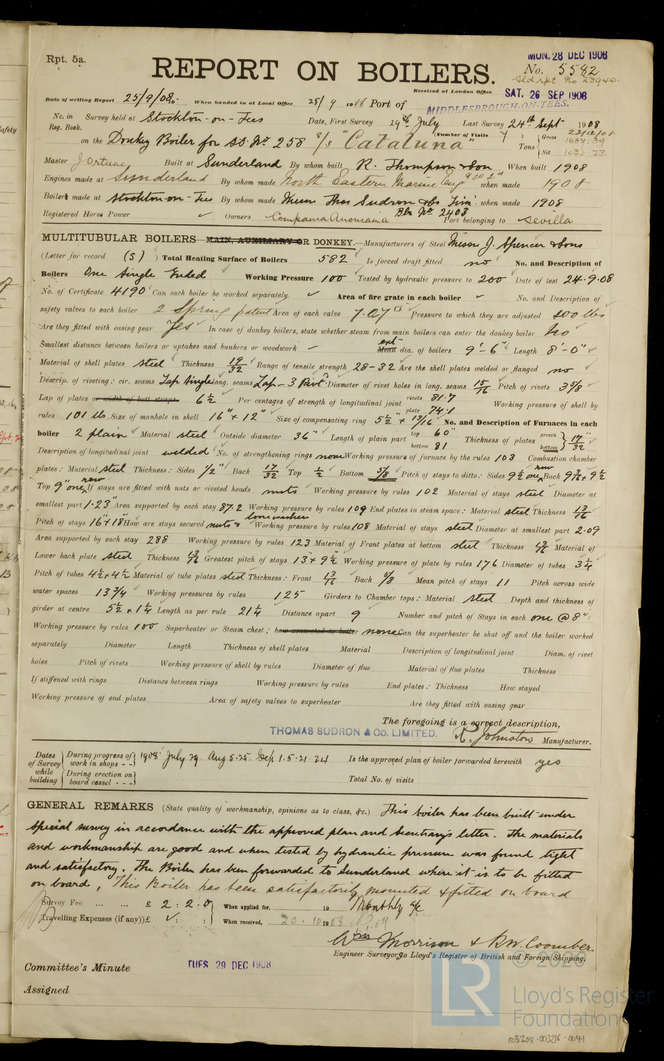 Rpt. 5a.
MON. 28 DEC 1908
REPORT ON BOILERS.
No. 5582
Received at London Office
SAT. 26 SEP 1908
Date of writing Report 25/9/08 When handed in at Local Office 25/9 1908 Port of MIDDLESBROUGH-ON-TEES.
No. in Reg. Book. Survey held at Stockton-on-Tees Date, First Survey 19th July Last Survey 24th Sept 1908
(Number of Visits 7) Tons Gross Net
on the Donkey Boiler for SS. No 258 S/S "Cataluna"
Master J. Ortuno Built at Sunderland By whom built R. Thompson & Son When built 1908
Engines made at Sunderland By whom made North Eastern Marine Eng when made 1908
Boiler made at Stockton-on-Tees By whom made Messrs Thos Sudron & Co Lim when made 1908
Registered Horse Power Owners Compania Anonima Blr No. 2403 Port belonging to Sevilla
MULTITUBULAR BOILERS MAIN, AUXILIARY OR DONKEY.—Manufacturers of Steel Messrs J. Spencer & Sons
(Letter for record (S) ) Total Heating Surface of Boilers 582 Is forced draft fitted no No. and Description of
Boilers One Single Ended Working Pressure 100 Tested by hydraulic pressure to 200 Date of test 24.9.08
No. of Certificate 4190 Can each boiler be worked separately Area of fire grate in each boiler No. and Description of
safety valves to each boiler 2 Spring patent Area of each valve 7.07 Pressure to which they are adjusted 100 lbs
Are they fitted with easing gear Yes In case of donkey boilers, state whether steam from main boilers can enter the donkey boiler No
Smallest distance between boilers or uptakes and bunkers or woodwork Mean ext dia. of boilers 9'-6" Length 8'-0"
Material of shell plates steel Thickness 19/32 Range of tensile strength 28-32 Are the shell plates welded or flanged no
Descrip. of riveting: cir. seams Lap Single long. seams Lap-3 Rivt Diameter of rivet holes in long. seams 15/16 Pitch of rivets 3 5/8
Lap of plates or width of butt straps 6 1/2 Per centages of strength of longitudinal joint rivets 81.7 plate 74.1 Working pressure of shell by
rules 101 lbs Size of manhole in shell 16" x 12" Size of compensating ring 5 1/2 x 13/16 No. and Description of Furnaces in each
boiler 2 plain Material steel Outside diameter 36" Length of plain part top 60" bottom 81 Thickness of plates crown bottom 17/32
Description of longitudinal joint welded No. of strengthening rings none Working pressure of furnace by the rules 103 Combustion chamber
plates: Material steel Thickness: Sides 1/2" Back 17/32 Top 1/2 Bottom 5/8 Pitch of stays to ditto: Sides 9 1/2 one row Back 9 3/8 x 9 1/2
Top 9" one row If stays are fitted with nuts or riveted heads nuts Working pressure by rules 102 Material of stays steel Diameter at
smallest part 1.23" Area supported by each stay 87.2 Working pressure by rules 109 End plates in steam space: Material steel Thickness 13/16
Pitch of stays 16" x 18" How are stays secured nuts & loose washer Working pressure by rules 108 Material of stays steel Diameter at smallest part 2.09
Area supported by each stay 288 Working pressure by rules 123 Material of Front plates at bottom steel Thickness Material of
Lower back plate steel Thickness Greatest pitch of stays 13" x 9 1/2 Working pressure of plate by rules 176 Diameter of tubes 3 1/4
Pitch of tubes 4 1/2 x 4 1/2 Material of tube plates steel Thickness: Front Back 5/8 Mean pitch of stays 11 Pitch across wide
water spaces 13 3/4 Working pressures by rules 125 Girders to Chamber tops: Material steel Depth and thickness of
girder at centre 5 1/2 x 1 1/4 Length as per rule 21 1/4 Distance apart 9 Number and pitch of Stays in each one @ 8"
Working pressure by rules 100 Superheater or Steam chest; how connected to boiler none Can the superheater be shut off and the boiler worked
separately Diameter Length Thickness of shell plates Material Description of longitudinal joint Diam. of rivet
holes Pitch of rivets Working pressure of shell by rules Diameter of flue Material of flue plates Thickness
If stiffened with rings Distance between rings Working pressure by rules End plates: Thickness How stayed
Working pressure of end plates Area of safety valves to superheater Are they fitted with easing gear
The foregoing is a correct description,
THOMAS SUDRON & CO. LIMITED. R. Johnston Manufacturer.
Dates of Survey while building
During progress of work in shops - - 1908 July 29. Aug 5.25. Sep 1.5.21.24 Is the approved plan of boiler forwarded herewith yes
During erection on board vessel - - - Total No. of visits
GENERAL REMARKS (State quality of workmanship, opinions as to class, &c.) This boiler has been built under
special survey in accordance with the approved plan and Secretary's letter. The materials
and workmanship are good and when tested by hydraulic pressure was found tight
and satisfactory. The Boiler has been forwarded to Sunderland where it is to be fitted
on board. This Boiler has been satisfactorily mounted & fitted on board
Survey Fee ... ... £ 2 : 2 : 0 When applied for, 19 Monthly a/c
Travelling Expenses (if any) £ : : When received, 20.10.1908
Wm Morrison & R.W. Coomber
Engineer Surveyor to Lloyd's Register of British and Foreign Shipping.
Committee's Minute TUES. 29 DEC 1908
Assigned
© 2020
LR
Lloyd's Register
Foundation
003208-003216-0041